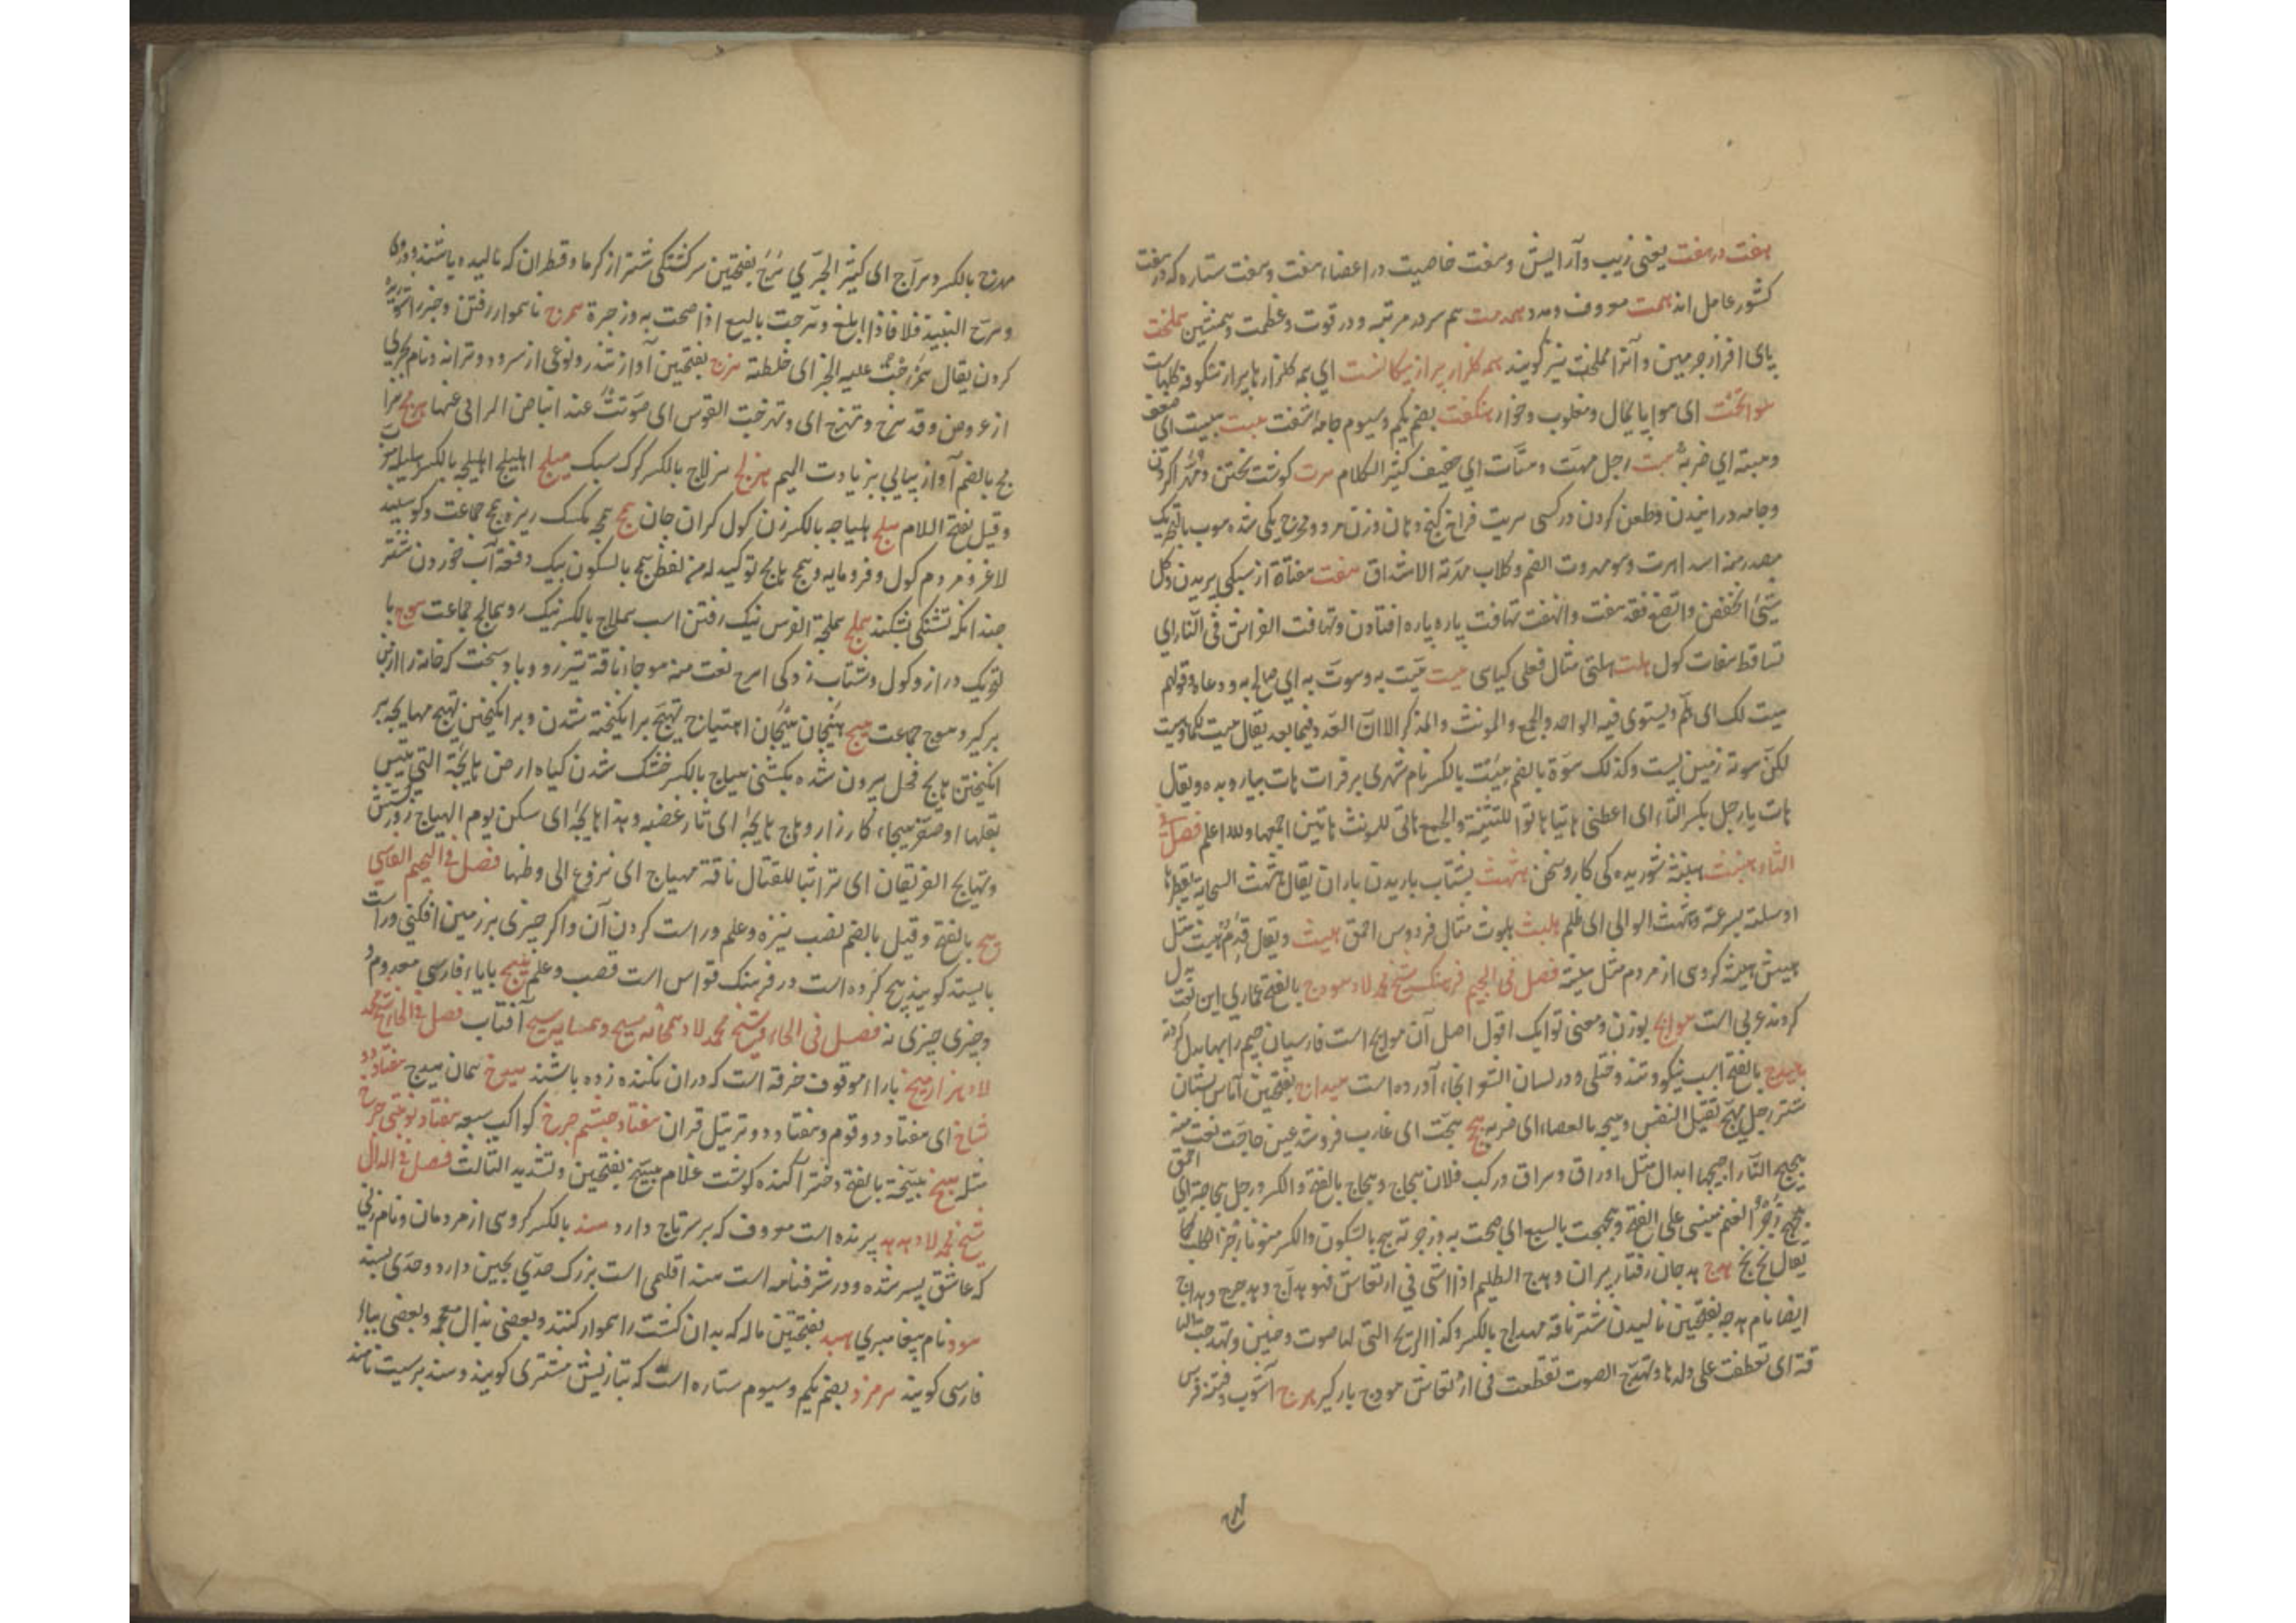 هفت در هفت یعنی زیب و آرایش و هفت خاصیت در اعضاء هفت و هفت ستاره که در هفت
کشور عامل اند همت معروف و هم مرتبه و در قوت و عظمت و همنشین هملخت
پای افزار چرمین و آنرا مملخت نیز گویند همه کلزار پر از ای همه کلزارها پر از شکوفه
ای هوا پایمال و مغلوب و خوار هنکفت بضم یکم و سیوم جامه هبت هبیت ای ضعف
وهبته ای ضربه هت رجل مهت و هتات ای خفیف کثیر الکلام هرت کوشت پختن
وجامه درانیدن وطعن کردن در کسی هریت فراخ
مصدر منه اسد اهرت و هو مهروت الفم و کلاب مهرته الاشداق هفت
شیٔ انخفض واتضع فقد هفت وانهفت تهافت پاره پاره افتادن و تهافت الفراش فی النار ای
تساقط هفات کول هلت هلتی مثال فعلی کیاهی هیت هیت به و هوت به ای صاح به و دعاه و قولهم
هیت لک ای هلم ویستوی فیه الواحد والجمع والمونث والمذکر الا ان العدد فیما بعد یقال هیت لکما وهیت
لکن هوته زمین پست وکذلک هوة بالضم هیئت بالکسر نام شهری بر فرات هات بیار و بده ویقال
هات یا رجل بکسر التاء ای اعطنی هاتیا هاتوا للتثنیة والجمع هاتی للمونث هاتین اجمعها والله اعلم فصل فی
الثاء هنبثة شوریده کی کار و سخن هثهث بشتاب باریدن باران یقال هثهث السحاب بقطرها
اوسلته بسرعة وهثهث الوالی ای ظلم هلبث هلبوث مثال فردوس احمق هلیث
هیش هیثه کروهی از مردم مثل هیشه فصل فی الجیم فرهنک شیخ محمد لاد هودج بالفتح عماری این لغت
کردند عربی است هواج بوزن ومعنی تو ایک اقول اصل آن مواج است فارسیان جیم را بها بدل کرده
بالفتح اسب نیکو و تند و ختلی و در لسان الشعرا بخاء آورده است هیداج بفتحتین آماس پستان
شتر رجل هبج ثقیل النفس وهبجه بالعصاء ای ضربه هج هجت ای غارب فروشد عین حاجت نعت منه
هجیج النار اجیجها ابدال مثل اوراق وهراق ورکب فلان هجاج وهجاج بالفتح والکسر ورجل هجاجة ای احمق
هجهج زجر الغنم مبنی علی الفتح وهجهجت بالسبع ای صحت به و زجرته هج بالسکون والکسر منونا زجر الکلب کما
یقال بخ بخ هدج هدجان رفتار پیران وهدج الظلیم اذا مشی فی ارتعاش فهو هداج وهدجدج وهداج
ایضا نام هدجه بفتحتین نالیدن شتر ناقه مهداج بالکسر وکذا الریح التی لها صوت وحنین وتهدجت النا
قة ای تعطفت علی ولدها وتهدج الصوت تقطعت فی ارتعاش هودج بارکیر هرج آشوب وفتنه فرس
مهرج بالکسر وهراج ای کثیر الجری هرج بفتحتین سرکشتکی شتر از کرما و قطران که مالیده باشند و دران
وهرج النبیذ فلانا اذا ابلغ وهرجت بالسبع اذا صحت به و زجرة هرج ناهموار رفتن و خبر راشوریده
کردن یقال همرجت علیه الخبر ای خلطته هزج بفتحتین آواز تندر و نوعی از سرود و ترانه و نام بحری
از عروض وقد هزج وتهزج ای وتهزجت القوس ای صوتت عند انباض الرامی عنها
بالضم آواز پیاپی بزیادت المیم هزلج هزلاج بالکسر کرک سبک هیلج اهلیلج اهلیلجه بالکسر هلیله
وقیل بفتح اللام هلج هلباجه بالکسر زن کول کران جان همج همجه مکسک ریزه همج جماعت وکوسپند
لاغر و مردم کول و فرومایه و همج هامج توکید له من لفظه همج بالسکون بیک دفعه آب خوردن شتر
چندانکه تشنکی بشکند هملج هملجة الفرس نیک رفتن اسب هملاج بالکسر نیک رو همالیج جماعت هوج با
لتحریک دراز و کول و شتاب زدکی اهوج نعت منه هوجاء ناقة تیز رو و باد سخت که خانه را از بن
برکیرد هوج جماعت هیج هیجان هیجان اهتیاج تهیج برانکیخته شدن و برانکیختن تهیج مهایجه بر
انکیختن هایج فحل بیرون شده بکشنی هیاج بالکسر خشک شدن کیاه ارض هایجة التی یبس
بقلها او صفر هیجاء کارزار و هاج هایجه ای ثار غضبه وهدا هایجه ای سکن یوم الهیاج روز
وتهایج الفریقان ای تراتبا للقتال ناقة مهیاج ای نزوع الی وطنها فصل فی الجیم الفارسی
هج بالفتح وقیل بالضم نصب نیزه وعلم و راست کردن آن و اکر چیزی بر زمین افکنی و راست
بایستد کویند هج کرده است در فرهنک قواس است قصب وعلم هیج بایاء فارسی معدوم و
چیزی چیزی نه فصل فی الحاء شیخ محمد لاد همخانه مسیح و همسایه مسیح آفتاب فصل فی الخاء شیخ محمد
لاد هزار میخ باراء موقوف خرقه است که دران بکنده زده باشند هیدخ همان هیدج هفتاد و دو
شاخ ای هفتاد و دو قوم و هفتاد و دو ترتیل قران هفتاد چشم چرخ کواکب سبعه هفتاد نوبتی چرخ
مثله هبیخ هبیخة بالفتح دختر آکنده کوشت غلام هبیخ بفتحتین وتشدید الثالث فصل فی الدال
شیخ محمد لاد هدهد پرنده است معروف که بر سر تاج دارد هند بالکسر کروهی از مردمان و نام زنی
که عاشق پسر شده و در شرفنامه است هند اقلیمی است بزرک حدی بچین دارد و حدی بسند
هود نام پیغامبری هبد بفتحتین ماله که بدان کشت را هموار کنند و بعضی بذال معجمه و بعضی بیاء
فارسی کویند هرمزد بضم یکم و سیوم ستاره است که بتازیش مشتری کویند و سند برسیت نامند